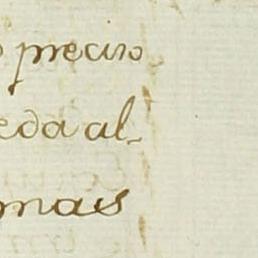 preciso
eda al-
mais